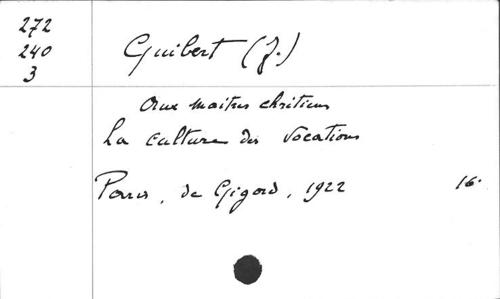 272
240
3
Guibert (J.)
Aux maîtres chrétiens
La culture des vocations
Paris, de Gigord, 1922 16.